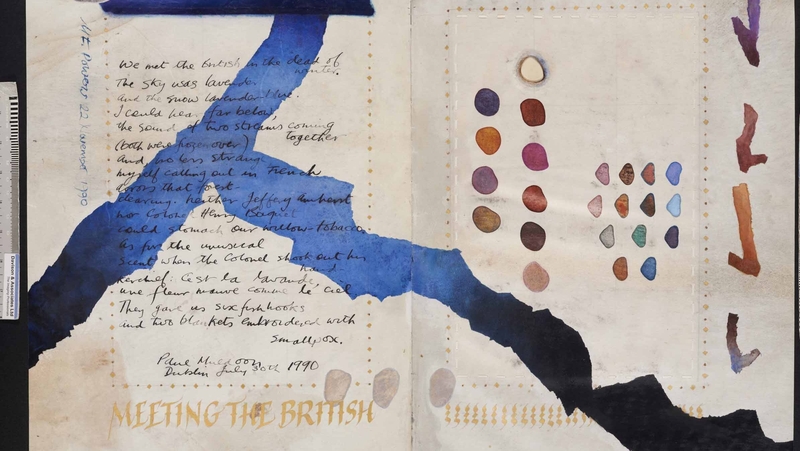 We met the British in the dead of
winter.
The sky was lavender
and the snow lavender-blue.
I could hear, far below,
the sound of two streams coming
together
(both were frozen over)
and, no less strange,
myself calling out in French
across that forest
clearing. Neither Jeffery Amherst
nor Colonel Henry Bouquet
could stomach our willow-tobacco.
As for the unusual
scent when the Colonel shook out his
hand
kerchief: C'est la lavande,
une fleur mauve comme le ciel
They gave us six fishhooks
and two blankets embroidered with
smallpox.
Paul Muldoon
Dublin July 30th 1990
MEETING THE BRITISH
22 November 1990
Davison & Associates Ltd